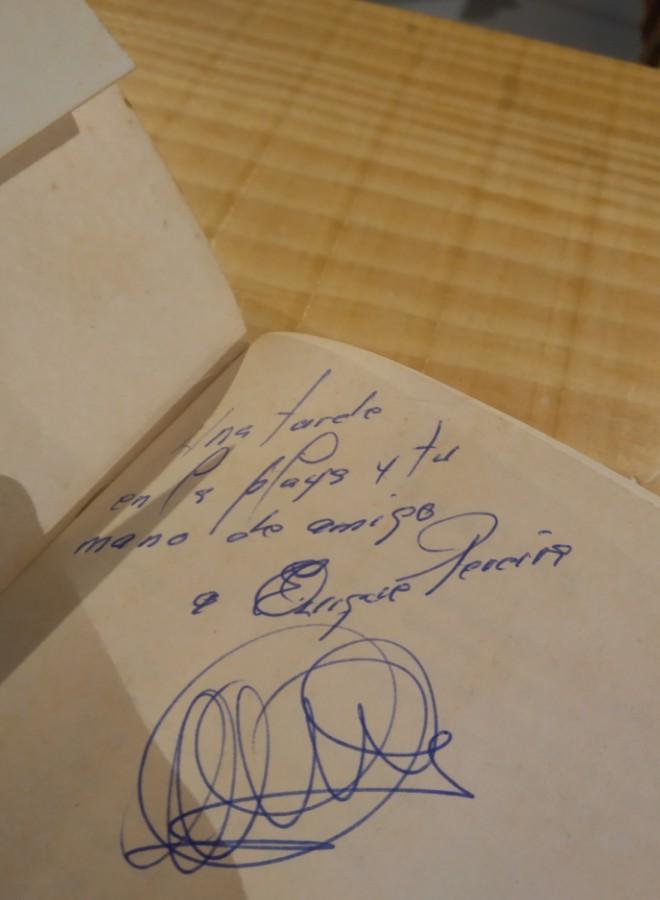 Una tarde
en la playa y tu
mano de amigo
a Enrique Pereira